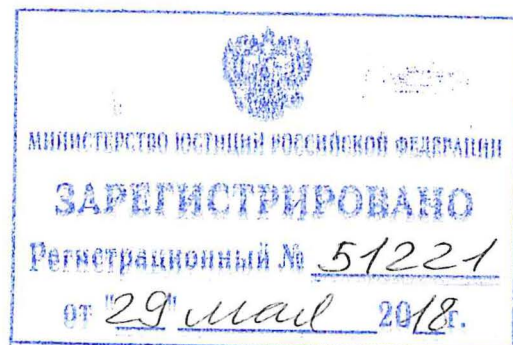 МИНИСТЕРСТВО ЮСТИЦИИ РОССИЙСКОЙ ФЕДЕРАЦИИ
ЗАРЕГИСТРИРОВАНО
Регистрационный № 51221
от "29" мая 2018г.